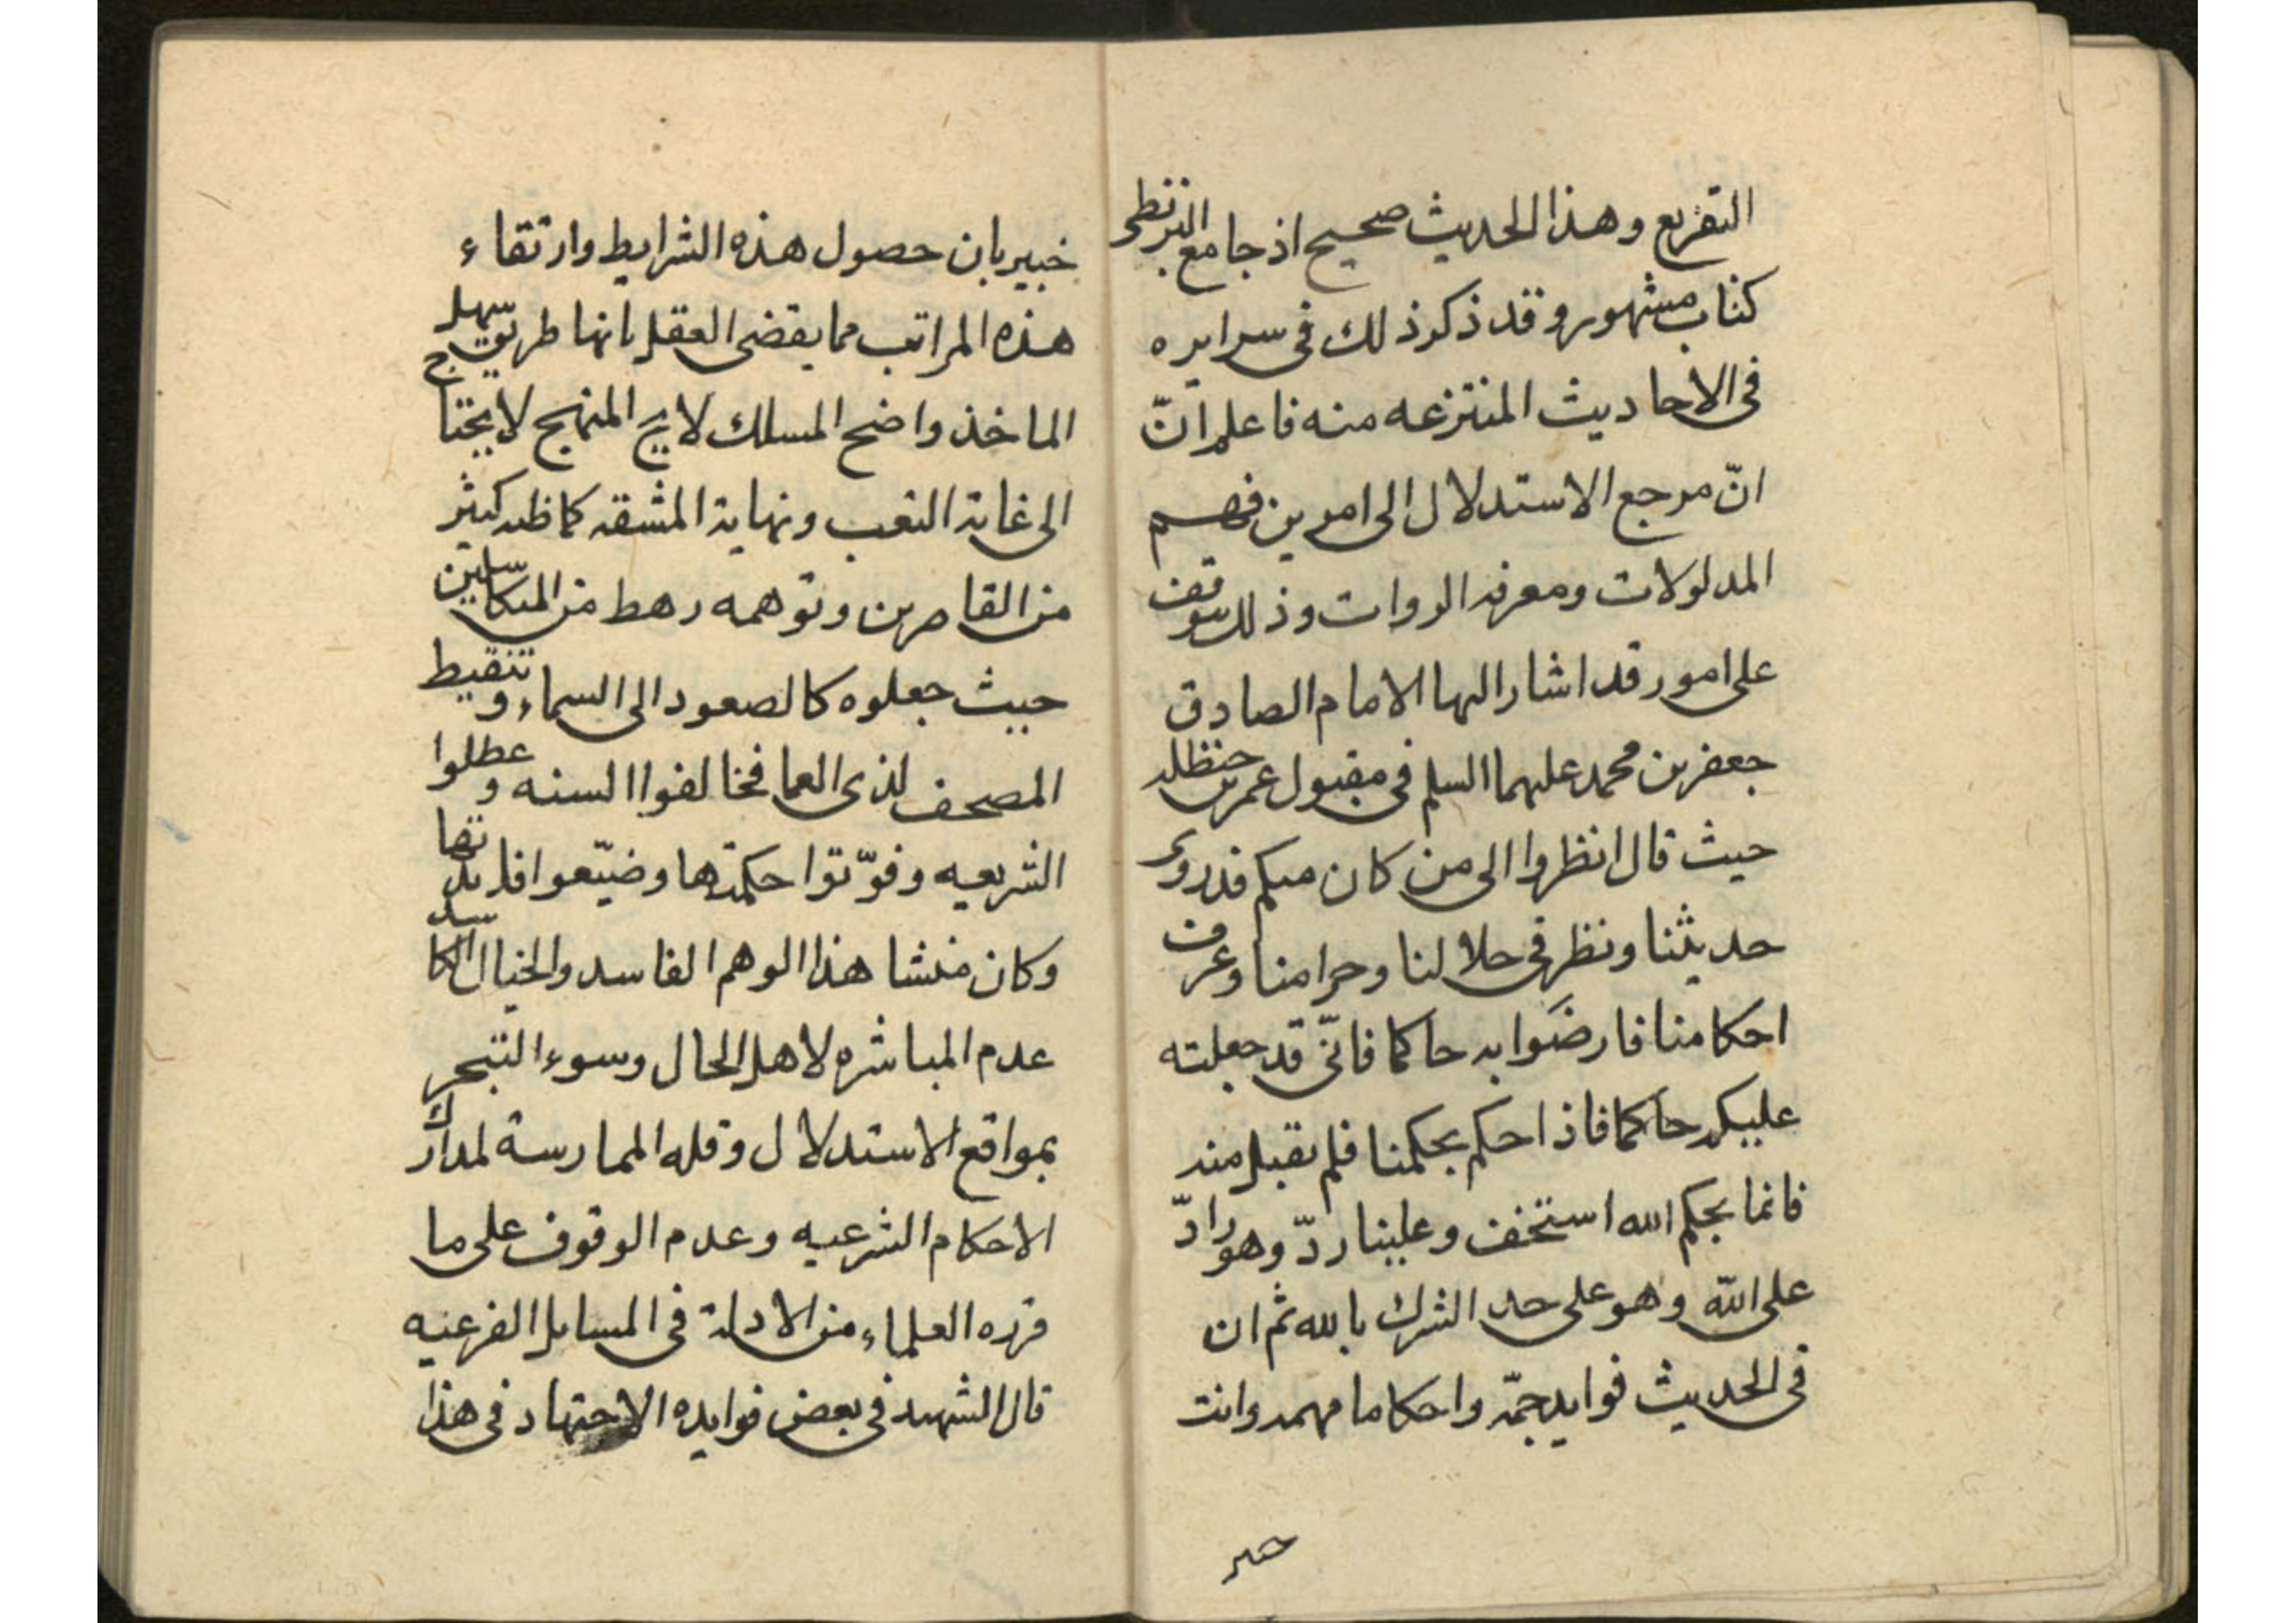 التفريع وهذا الحديث صحيح اذ جامع البزنطى
كتاب مشهور وقد ذكر ذلك فى سرايره
فى الاحاديث المنتزعه منه فاعلم انّ
انّ مرجع الاستدلال الى امرين فهم
المدلولات ومعرفه الروات وذلك يتوقف
على امور قد اشار اليها الامام الصادق
جعفر بن محمد عليهما السلم فى مقبول عمر بن حنظله
حيث قال انظروا الى من كان منكم قد روى
حديثنا ونظر فى حلالنا وحرامنا وعرف
احكامنا فارضوا به حاكما فانّى قد جعلته
عليكم حاكما فاذا حكم بحكمنا فلم يقبل منه
فانما بحكم الله استخف وعلينا ردّ وهو رادّ
على الله وهو على حد الشرك بالله ثم ان
فى الحديث فوايد جمّه واحكاما مهمه وانت
خبير
خبير بان حصول هذه الشرايط وارتقاء
هذه المراتب مما يقضى العقل بانها طريق سهل
الماخذ واضح المسلك لايح المنهج لا يحتاج
الى غاية التعب ونهاية المشقه كما ظنه كثير
من القاصرين وتوهمه رهط من المتكاسلين
حيث جعلوه كالصعود الى السماء وتنقيط
المصحف لذى العما فخالفوا السنه وعطلوا
الشريعه وفوّتوا حكمتها وضيّعوا فايدتها
وكان منشا هذا الوهم الفاسد والخيال الكاسد
عدم المباشره لاهل الحال وسوء التبحر
بمواقع الاستدلال وقله الممارسة لمدارك
الاحكام الشرعيه وعدم الوقوف على ما
قرره العلماء من الادلة فى المسايل الفرعيه
قال الشهيد فى بعض فوايده الاجتهاد فى هذا